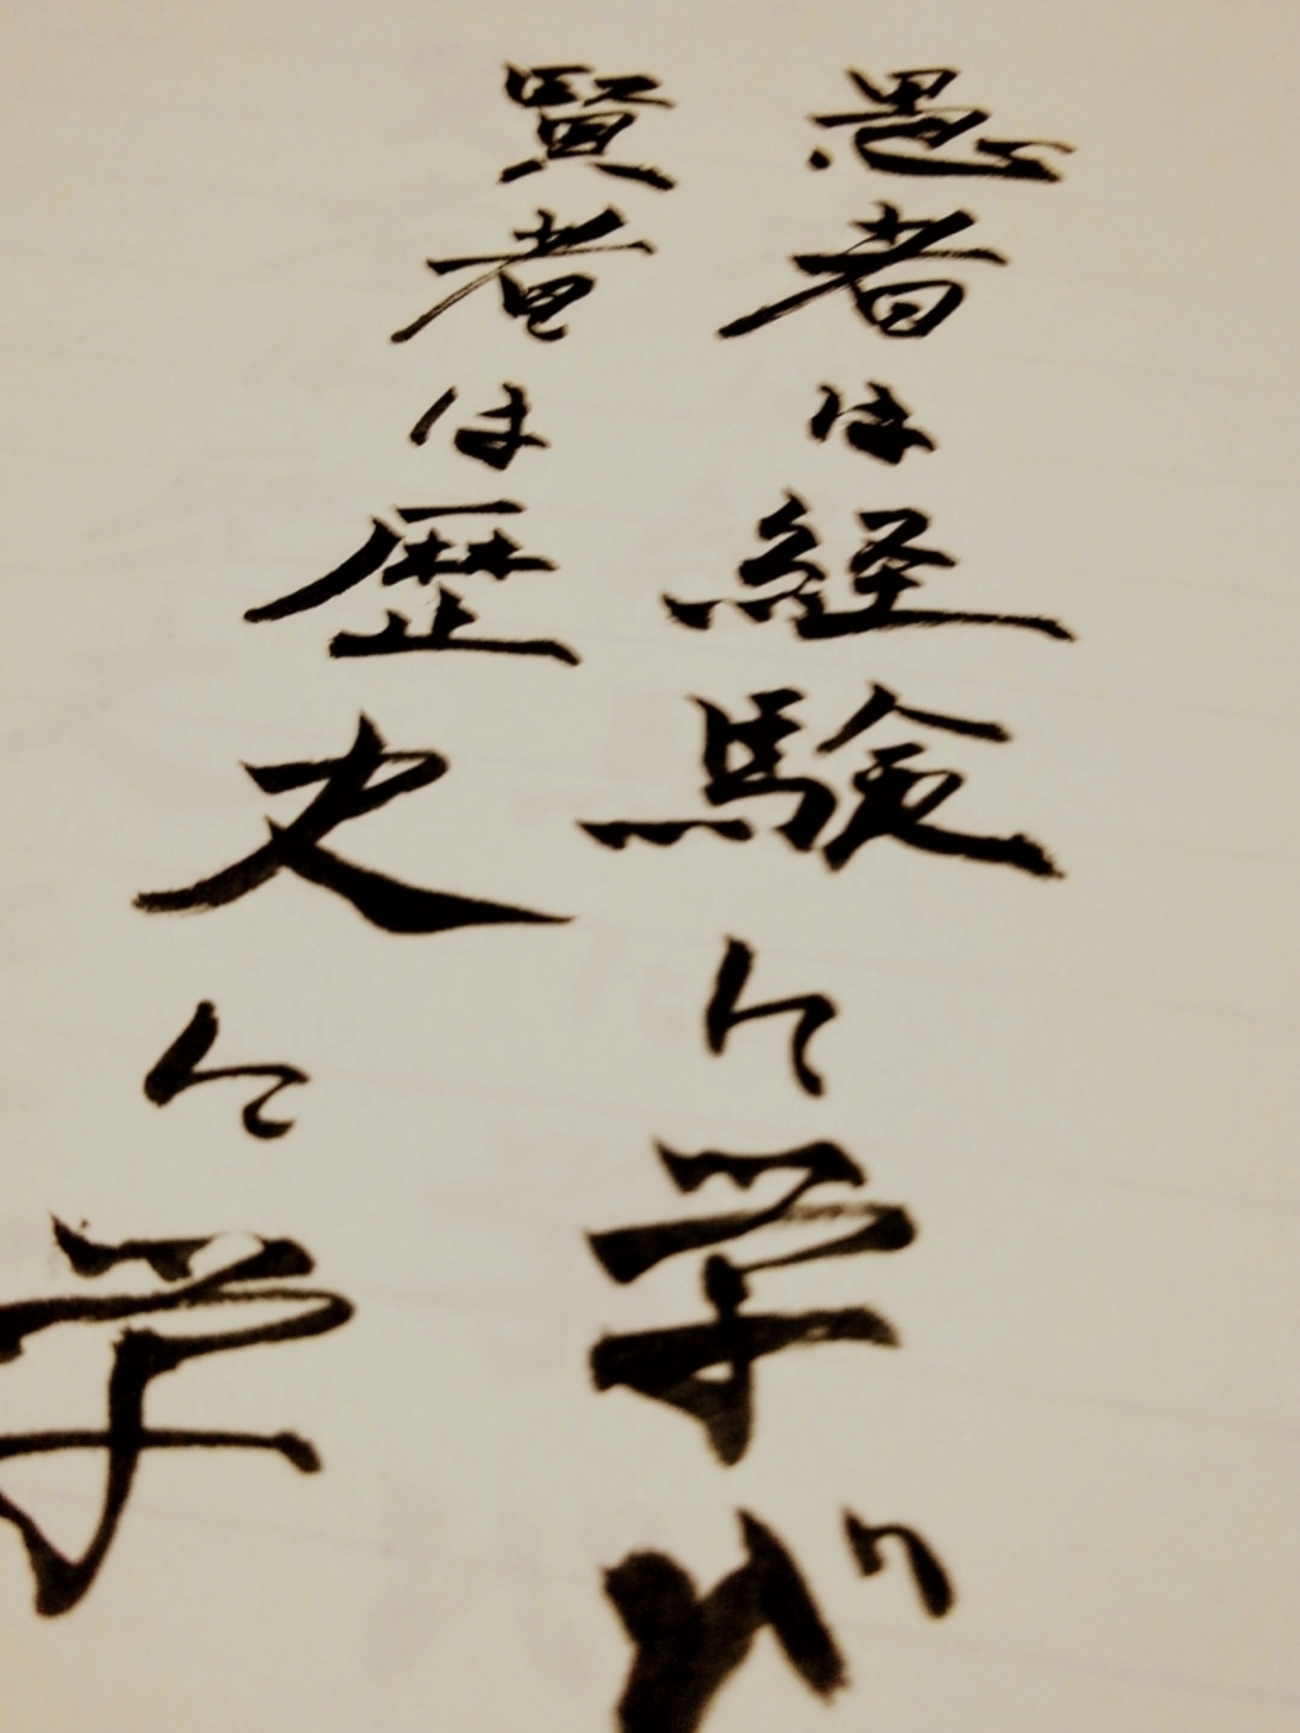 愚者は経験に学び
賢者は歴史に学